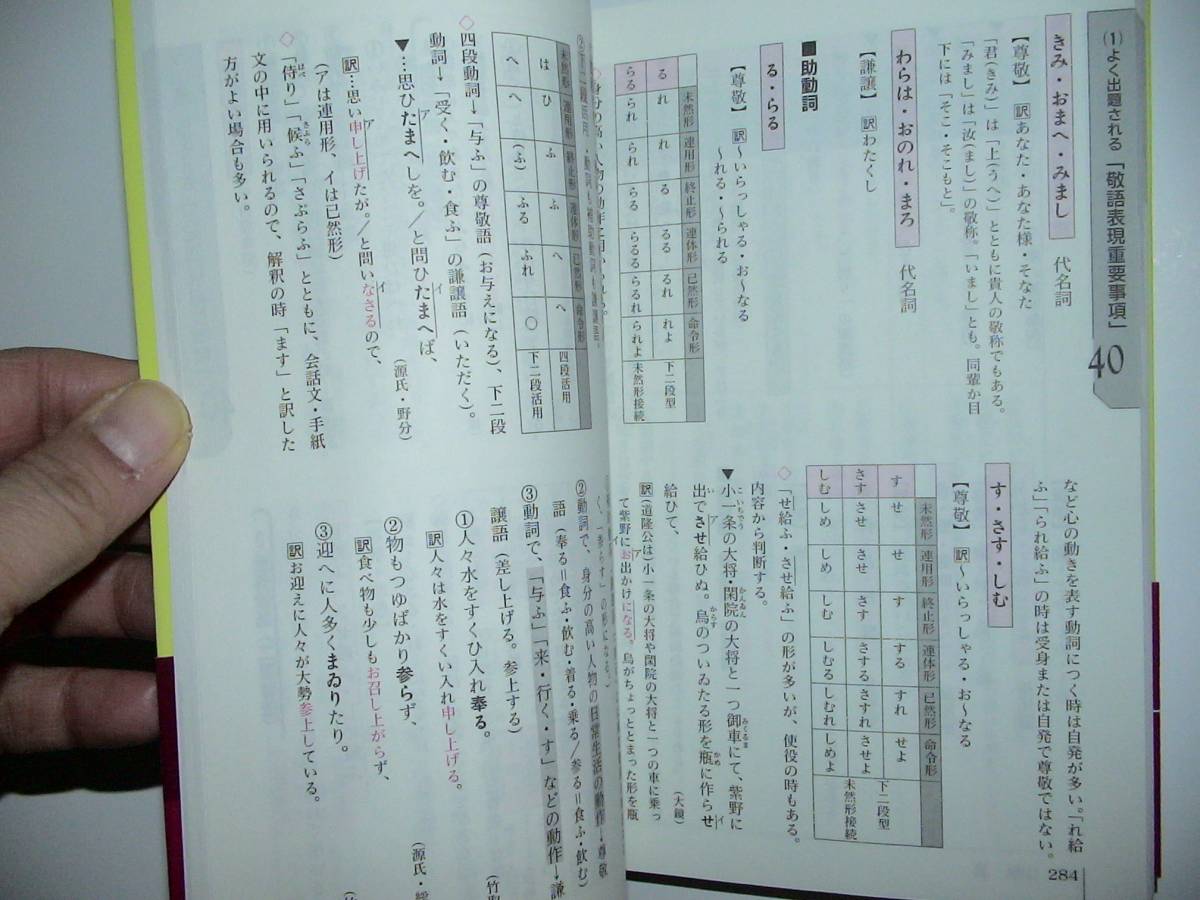 (1)よく出題される「敬語表現重要事項」
40
きみ・おまへ・みまし 代名詞
【尊敬】 訳 あなた・あなた様・そなた
「君(きみ)」は「上(うへ)」とともに貴人の敬称でもある。
「みまし」は「汝(まし)」の敬称。「いまし」とも。同輩か目
下には「そこ・そこもと」。
わらは・おのれ・まろ 代名詞
【謙譲】 訳 わたくし
■助動詞
る・らる
【尊敬】 訳 〜いらっしゃる・お〜なる
〜れる・〜られる
未然形 連用形 終止形 連体形 已然形 命令形
る れ れ る るる るれ れよ 下二段型
らる られ られ らる らるる らるれ られよ 未然形接続
など心の動きを表す動詞につく時は自発が多い。「れ給
ふ」「られ給ふ」の時は受身または自発で尊敬ではない。
す・さす・しむ
【尊敬】 訳 〜いらっしゃる・お〜なる
未然形 連用形 終止形 連体形 已然形 命令形
す せ せ す する すれ せよ 下二段型
さす させ させ さす さする さすれ させよ 未然形接続
しむ しめ しめ しむ しむる しむれ しめよ
◇「せ給ふ・させ給ふ」の形が多いが、使役の時もある。
内容から判断する。
▼小一条の大将・閑院の大将と一つ御車にて、紫野に
出でさせ給ひぬ。烏のついゐたる形を瓶に作らせ
給ひて、
(大鏡)
訳(道隆公は)小一条の大将や閑院の大将と一つの車に乗っ
て紫野にお出かけになる。烏がちょっととまった形を瓶
284
◇身分の高い人物の動作に用いられる。
未然形 連用形 終止形 連体形 已然形 命令形
は ひ ふ ふ へ へ 四段活用
へ へ (ふ) ふる ふれ ○ 下二段活用
◇四段動詞→「与ふ」の尊敬語(お与えになる)、下二段
動詞→「受く・飲む・食ふ」の謙譲語(いただく)。
▼…思ひたまへしを。/と問ひたまへば、
ア イ
(源氏・野分)
訳…思い申し上げたが。/と問いなさるので、
ア イ
(アは連用形、イは已然形)
◇「侍り」「候ふ」「さぶらふ」とともに、会話文・手紙
文の中に用いられるので、解釈の時「ます」と訳した
方がよい場合も多い。
く、「参らす」の形になる。)
②動詞で、身分の高い人物の日常生活の動作→尊敬
語(奉る=食ふ・飲む・着る・乗る/参る=食ふ・飲む)
③動詞で、「与ふ」「来・行く・す」などの動作→謙
譲語(差し上げる。参上する)
①人々水をすくひ入れ奉る。
(竹
訳 人々は水をすくい入れ申し上げる。
②物もつゆばかり参らず、
(源氏・
訳 食べ物も少しもお召し上がらず、
③迎へに人多くまゐりたり。
訳 お迎えに人々が大勢参上している。